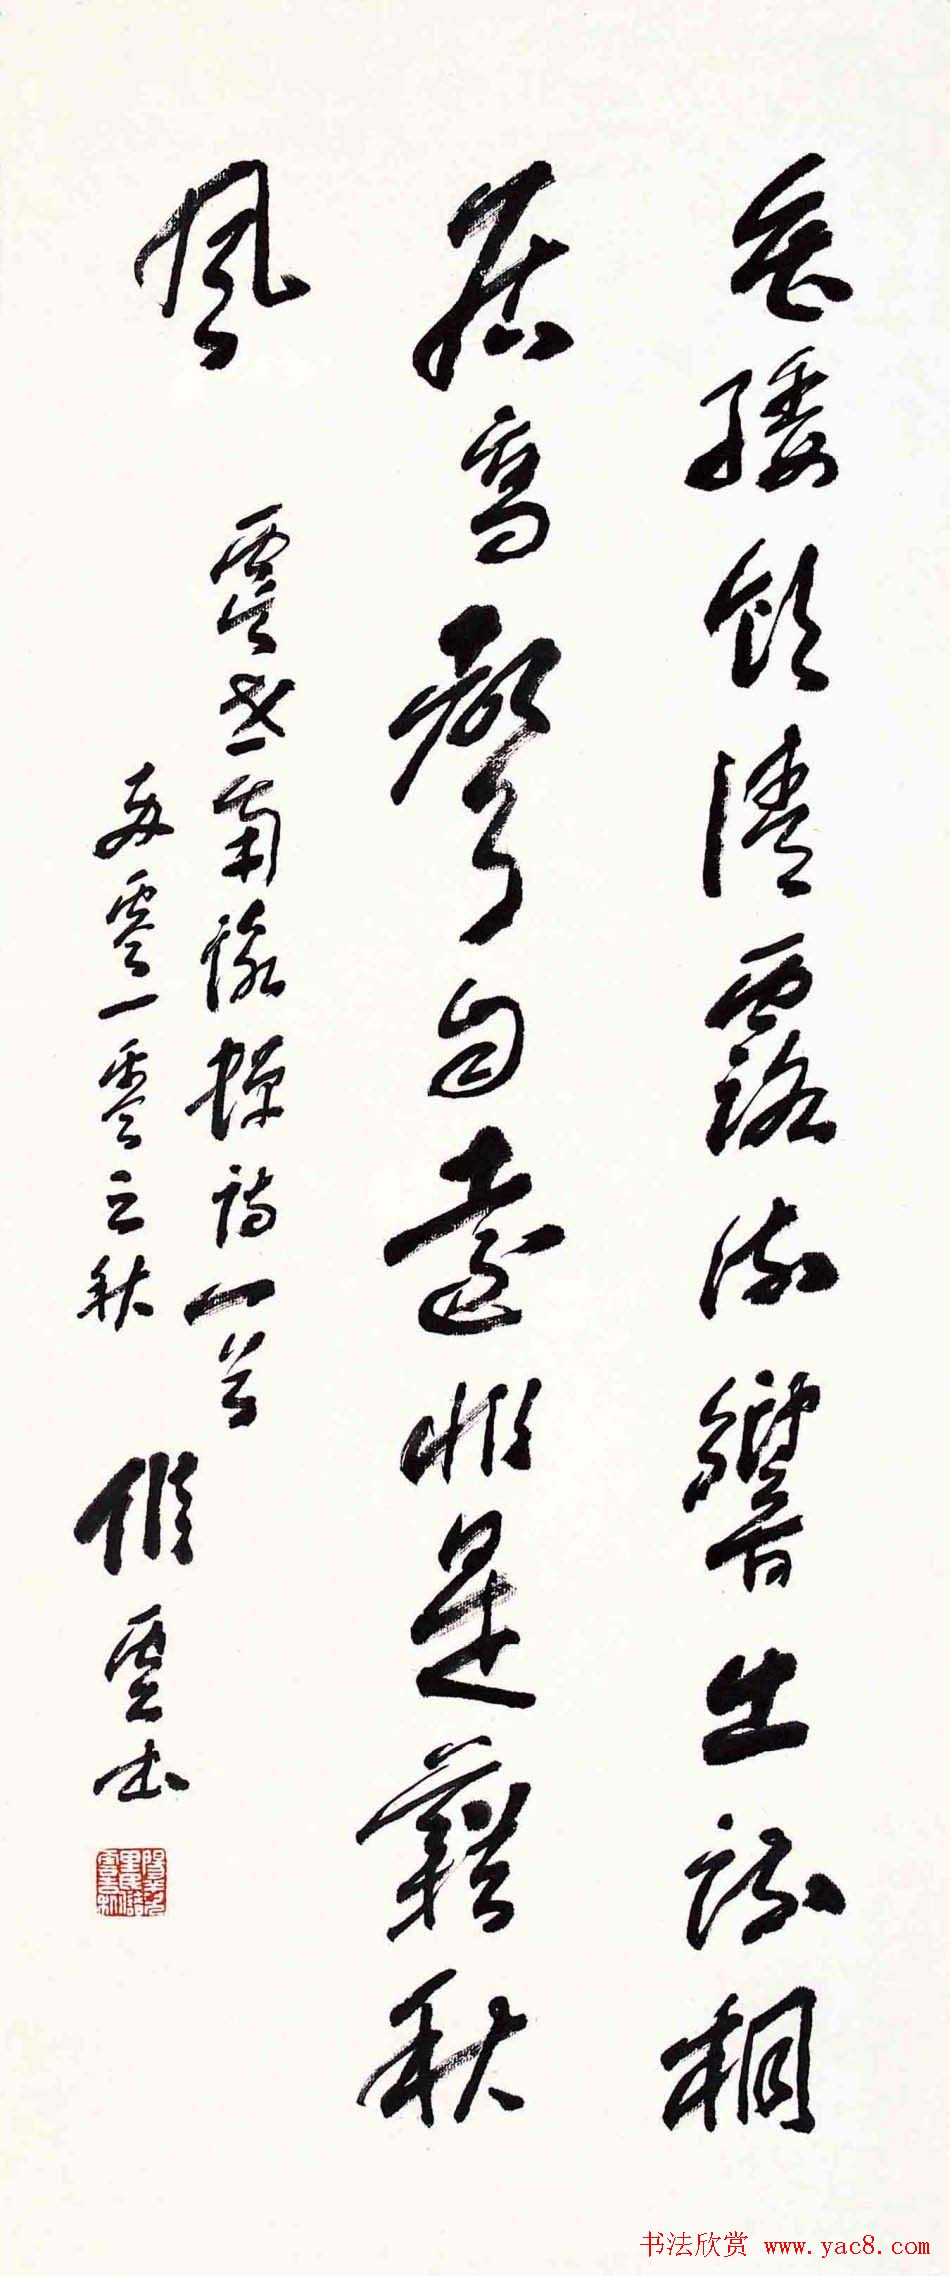 垂緌飲清露流響出疏桐
居高聲自遠非是藉秋
風
虞世南詠蟬詩一首
零一零之秋
書
书法欣赏 www.yac8.com